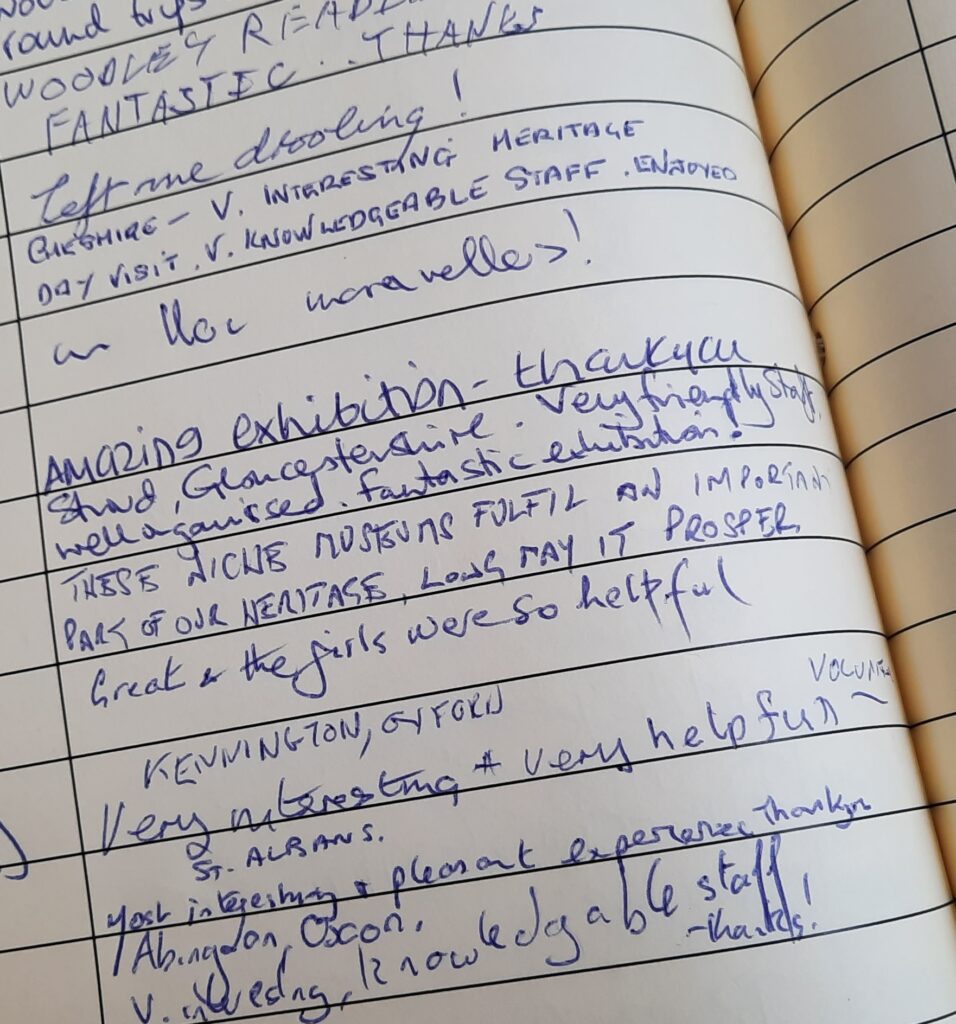 round trips
WOODLEY READ
FANTASTIC.. THANKS
Left me drooling!
BERKSHIRE - V. INTERESTING HERITAGE
DAY VISIT. V. KNOWLEDGEABLE STAFF. ENJOYED
maravelles!
AMAZING exhibition - thankyou
Stroud, Gloucestershire. Very friendly staff,
well organised. fantastic exhibition!
THESE NICHE MUSEUMS FULFIL AN IMPORTANT
PART OF OUR HERITAGE, LONG MAY IT PROSPER.
Great & the girls were so helpful
KENNINGTON, OXFORD
VOLUNTEE
Very interesting + very helpful ~
ST. ALBANS.
Most interesting + pleasant experience Thankyou
Abingdon, Oxon.
V. interesting, knowledgable staff
- thanks!